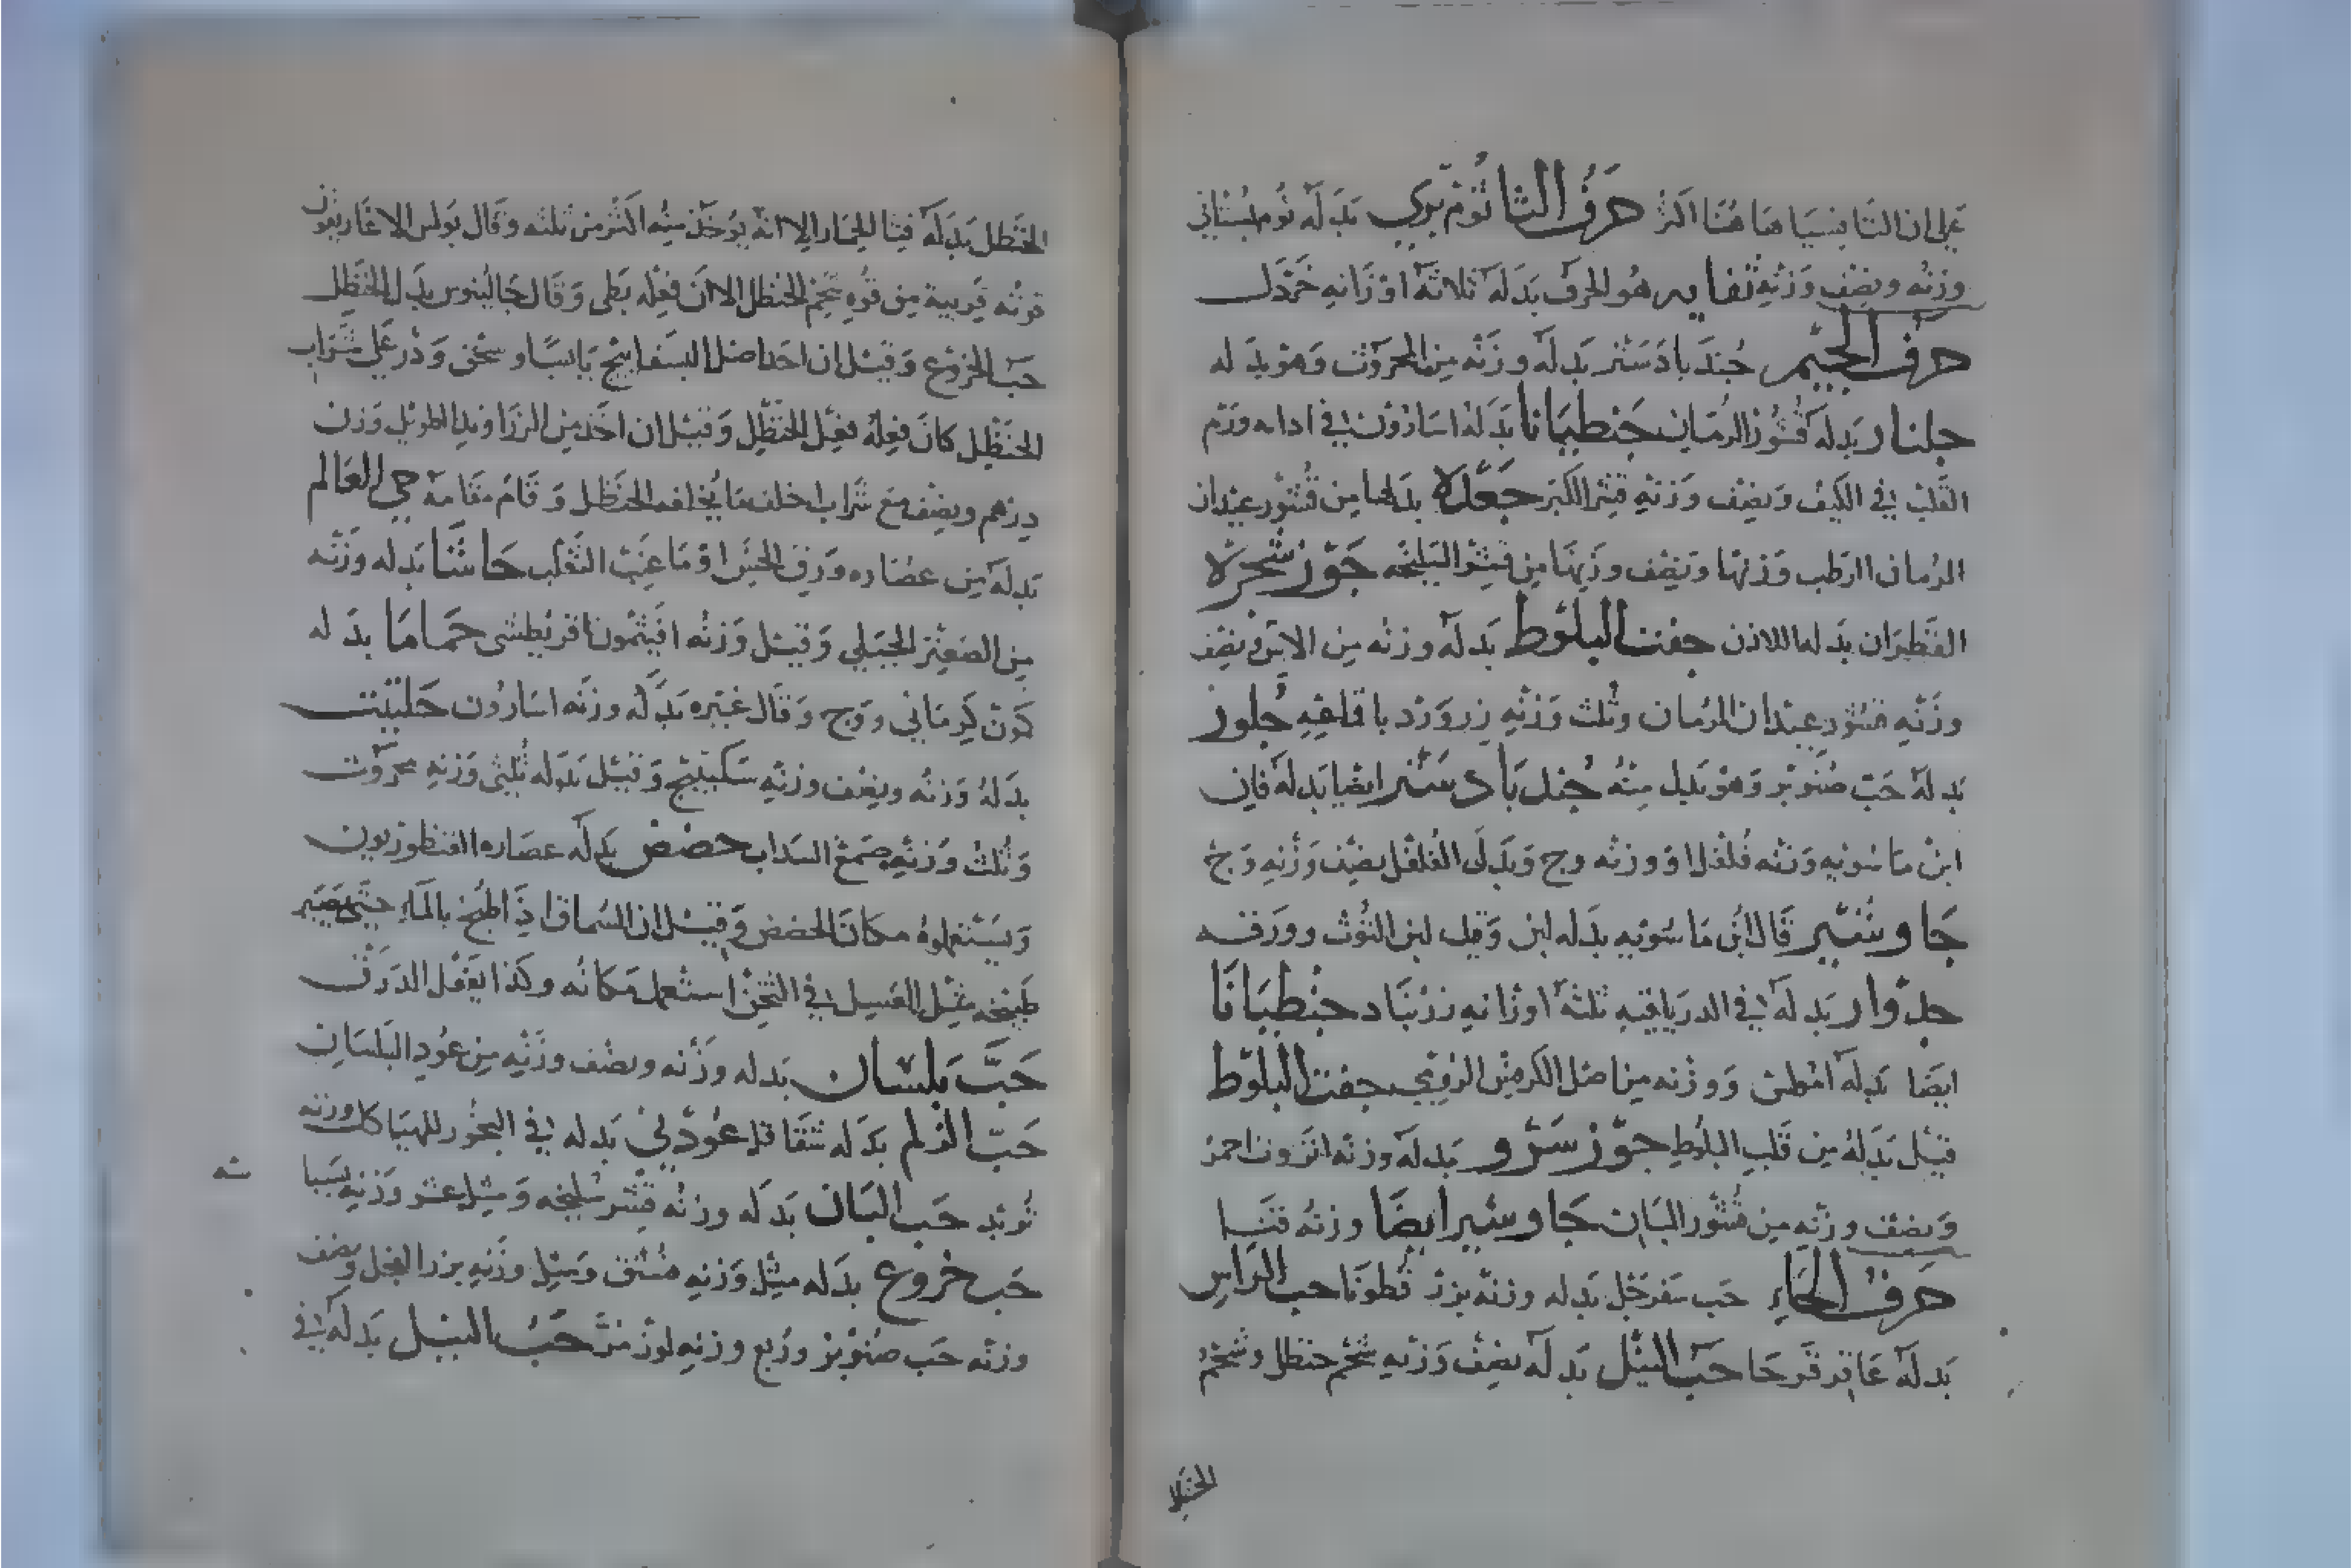 على ان التافسيا هاهنا اكثر حرف الثا ثوم بري بدله ثوم بستاني
وزنه ونصف وزنه ثفا هو الحرف بدله ثلاثة اوزانه خردل
حرف الجيم جندبادستر بدله وزنه من المحروت وهو بدله
جلنار بدله قشور الرمان جنطيانا بدله اسارون في ورم
القلب في الكيف ونصف وزنه قشر الكبر جعدة بدلها من قشور عيدان
الرمان الرطب وزنها ونصف وزنها من قشر السليخه جوز شجرة
القطران بدله اللاذن جفت البلوط بدله وزنه من نصف
وزنه قشور عيدان الرمان وثلث وزنه زر ورد باقماعه جلوز
بدله حب صنوبر وهو بديل منه جندبادستر ايضا بدله فان
ابن ماسويه وزنه فلفل او وزنه وج وبدل الفلفل نصف وزنه وج
جاوشير قال ابن ماسويه بدله لبن وقيل لبن التوت وورقه
جدوار بدله في الدرياقيه ثلثة اوزانه زرنباد جنطيانا
ايضا بدله ووزنه من اصل الكرفس الرومي جفت البلوط
قيل بدله من قلب البلوط جوز سرو بدله وزنه انزروت احمر
ونصف وزنه من قشور البان جاوشير ايضا وزنه قنا
حرف الحاء حب سفرجل بدله وزنه بزر قطونا حب الراس
بدله عاقر قرحا حب النيل بدله نصف وزنه شحم حنظل وشحم
الحنظل
الحنظل بدله قثا الحمار الا انه يوخذ منه اكثر من ثلثه وقال بولس الاغاريقون
قوته قريبة من قوه شحم الحنظل الا ان فعله بطى وقال جالينوس بدل الحنظل
حب الخروع وقيل ان اخذ اصل البسفايج يابسا وسحق وذر على شراب
الحنظل كان فعله فعل الحنظل وقيل ان اخذ من الزراوند الطويل وزن
درهم ونصف مع شراب اخلف ما يخلفه الحنظل وقام مقامه حي العالم
بدله من عصاره ورق الخس او ما عنب الثعلب حاشا بدله وزنه
من الصعتر الجبلي وقيل وزنه افيثمون اقريطشى حماما بدله
كمون كرماني ووج وقال غيره بدله وزنه اسارون حلتيت
بدله وزنه ونصف وزنه سكبينج وقيل بدله ثلثى وزنه محروت
وثلث وزنه صمغ السداب حضض بدله عصاره القنطوريون
ويستعملوه مكان الحضض وقيل ان السماق اذا طبخ بالماء حتى يصير
طبيخه مثل العسل في الثخن استعمل مكانه وكذا يفعل
حب بلسان بدله وزنه ونصف وزنه من عود البلسان
حب الزلم بدله شقاقل عودني بدله في البخور للهياكل وزنه
تربد حب البان بدله وزنه قشر سليخه ومثل عشر وزنه بسباسه
حب خروع بدله مثل وزنه فستق ومثل وزنه بزر الفجل ونصف
وزنه حب صنوبر وربع وزنه لوز مر حب النيل بدله في